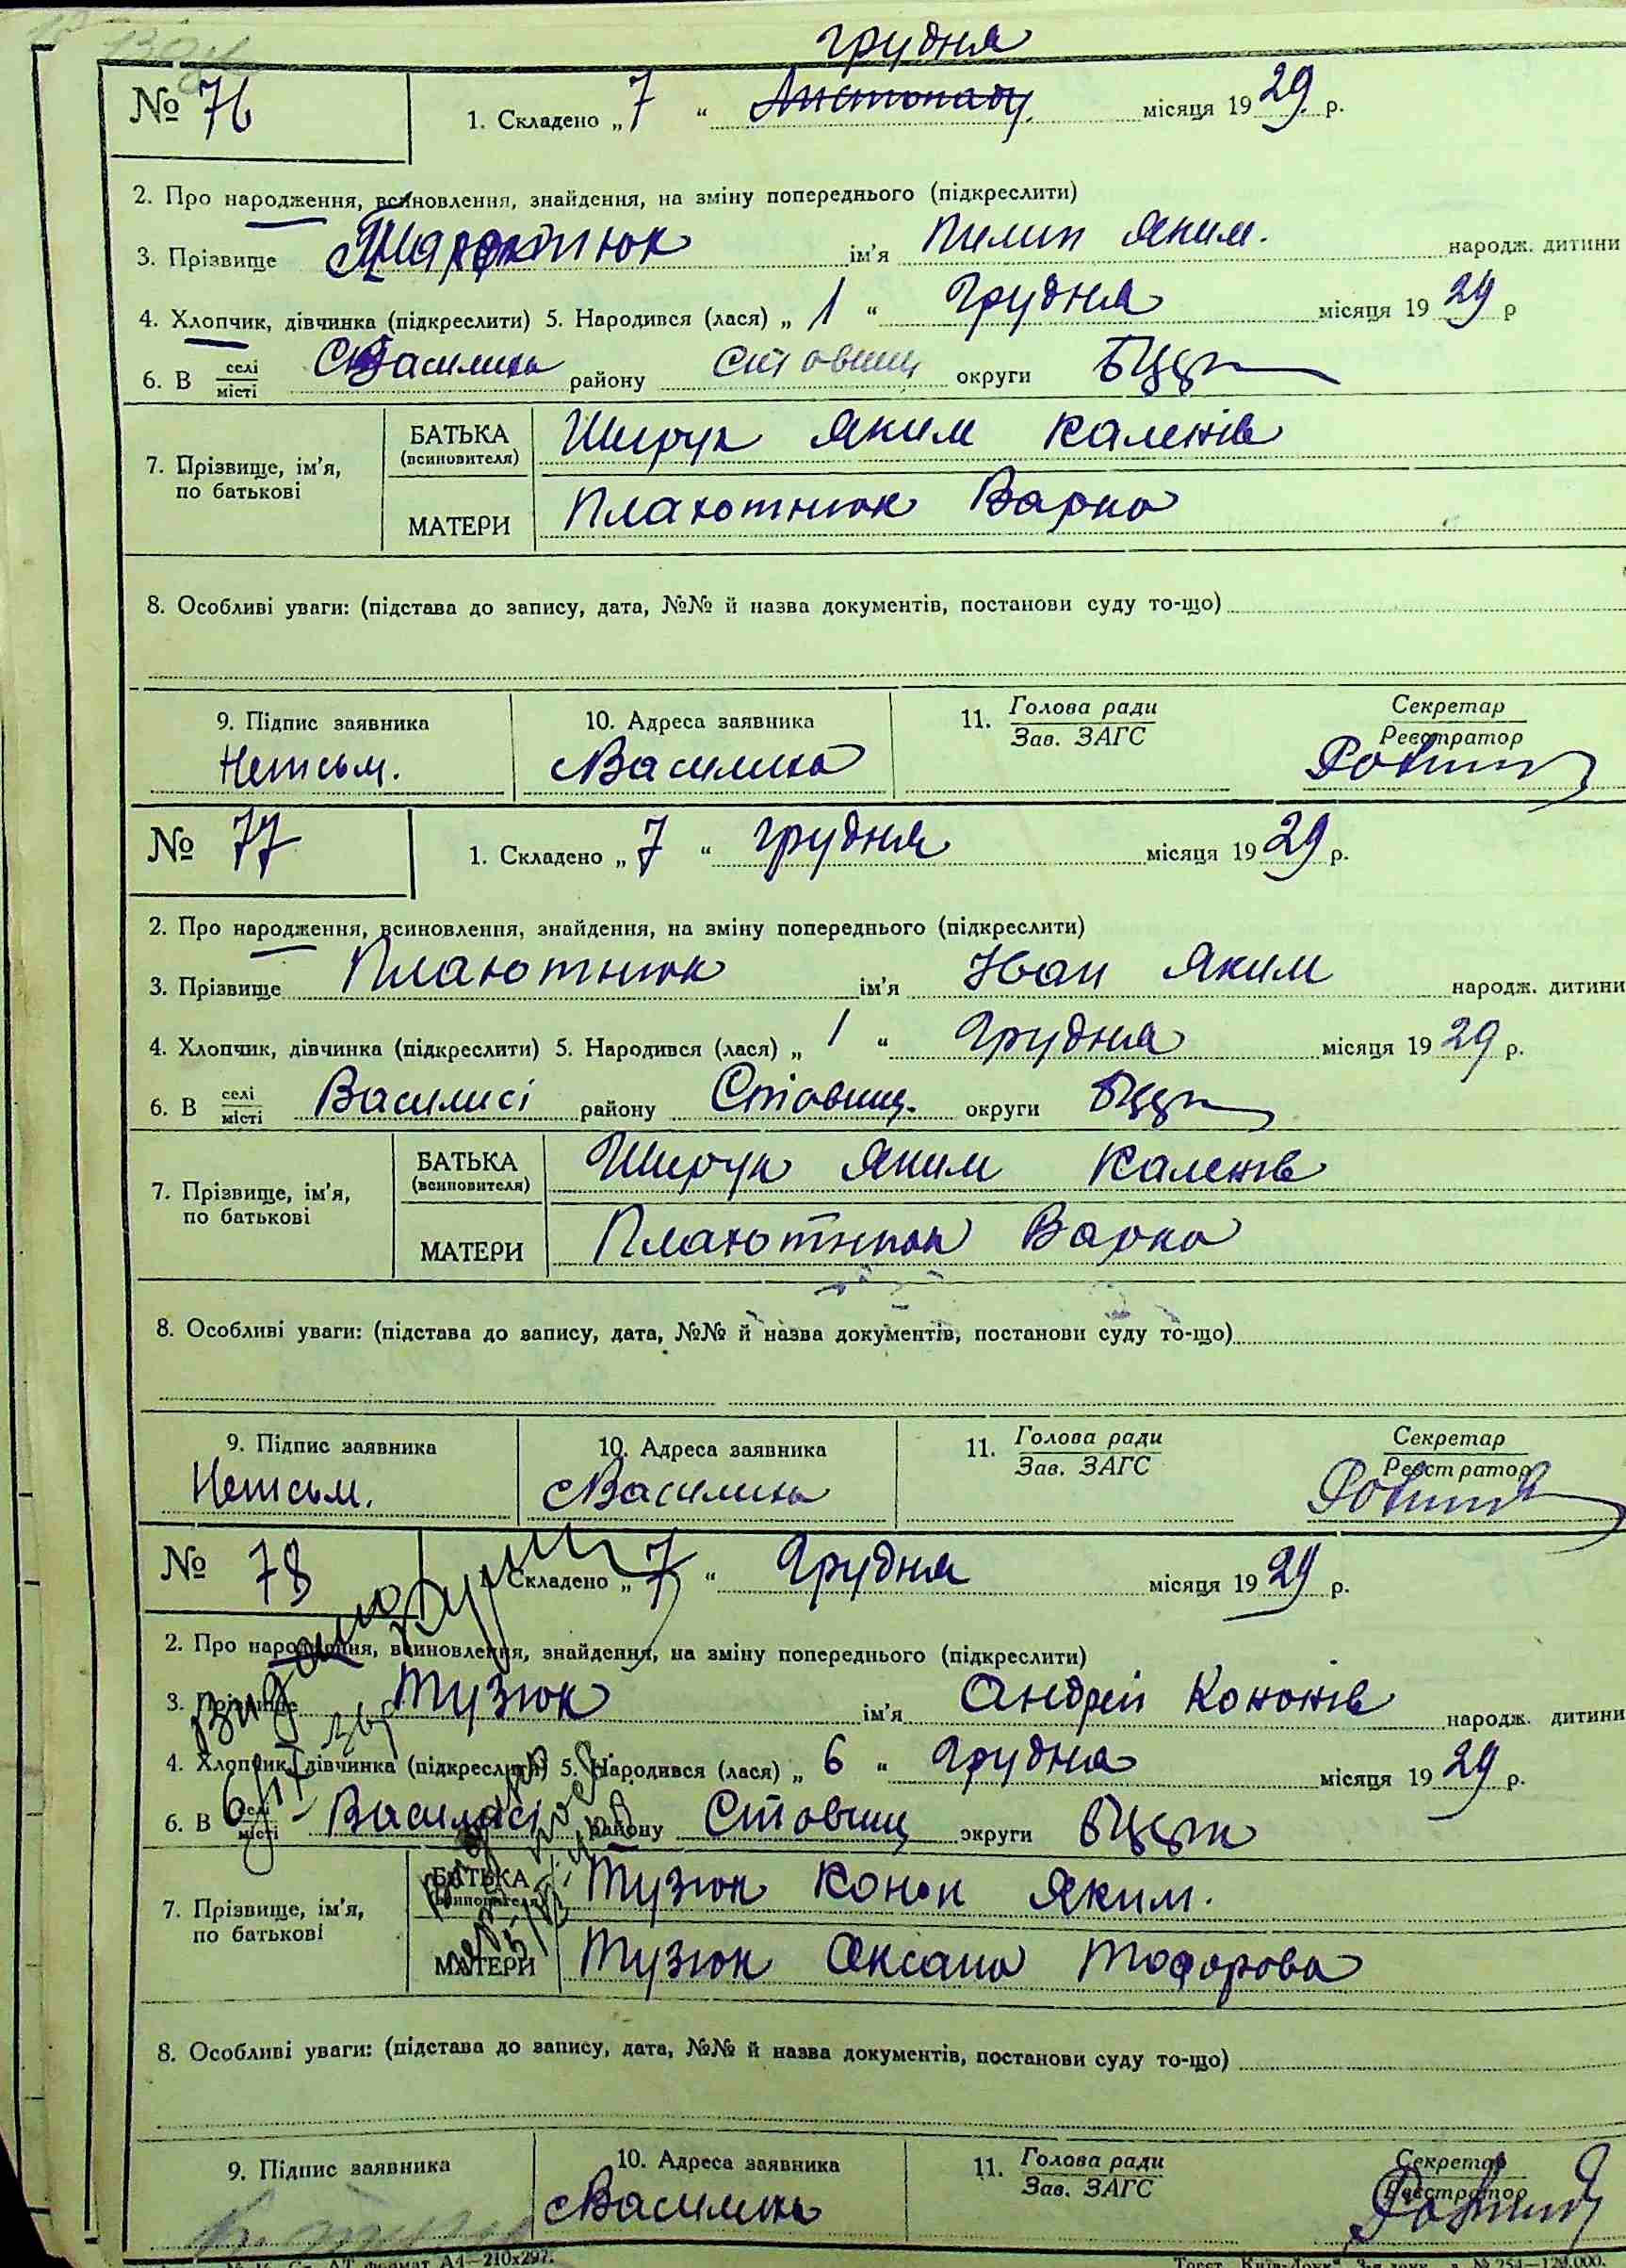 грудня
№ 76 1. Складено „ 7 “ Листопаду місяця 19 29 р.
2. Про народження, всиновлення, знайдення, на зміну попереднього (підкреслити)
3. Прізвище ім'я Пилип Яким. народж. дитини
4. Хлопчик, дівчинка (підкреслити) 5. Народився (лася) „ 1 “ Грудня місяця 19 29 р
6. В селі місті Василиха району Ставищ округи БЦцр
7. Прізвище, ім'я, по батькові БАТЬКА (всиновителя) Ширук Яким Каленів
МАТЕРИ Плахотнюк Варка
8. Особливі уваги: (підстава до запису, дата, №№ й назва документів, постанови суду то-що)
9. Підпис заявника 10. Адреса заявника 11. Голова ради Зав. ЗАГС Секретар Реєстратор
Неписьм. Василиха
№ 77 1. Складено „ 7 “ грудня місяця 19 29 р.
2. Про народження, всиновлення, знайдення, на зміну попереднього (підкреслити)
3. Прізвище Плахотнюк ім'я Іван Яким народж. дитини
4. Хлопчик, дівчинка (підкреслити) 5. Народився (лася) „ 1 “ Грудня місяця 19 29 р.
6. В селі місті Василисі району Ставищ. округи БЦцр
7. Прізвище, ім'я, по батькові БАТЬКА (всиновителя) Ширук Яким Каленів
МАТЕРИ Плахотнюк Варка
8. Особливі уваги: (підстава до запису, дата, №№ й назва документів, постанови суду то-що)
9. Підпис заявника 10. Адреса заявника 11. Голова ради Зав. ЗАГС Секретар Реєстратор
Неписьм. Василиха
№ 78 1. Складено „ 7 “ Грудня місяця 19 29 р.
2. Про народження, всиновлення, знайдення, на зміну попереднього (підкреслити)
3. Прізвище Тузюк ім'я Андрей Кононів народж. дитини
4. Хлопчик, дівчинка (підкреслити) 5. Народився (лася) „ 6 “ Грудня місяця 19 29 р.
6. В селі місті Василисі району Ставищ округи БЦцрк
7. Прізвище, ім'я, по батькові БАТЬКА (всиновителя) Тузюк Конон Яким.
МАТЕРИ Тузюк Оксана Тодорова
8. Особливі уваги: (підстава до запису, дата, №№ й назва документів, постанови суду то-що)
9. Підпис заявника 10. Адреса заявника 11. Голова ради Зав. ЗАГС Секретар Реєстратор
Василиха
формат А4—210х297.